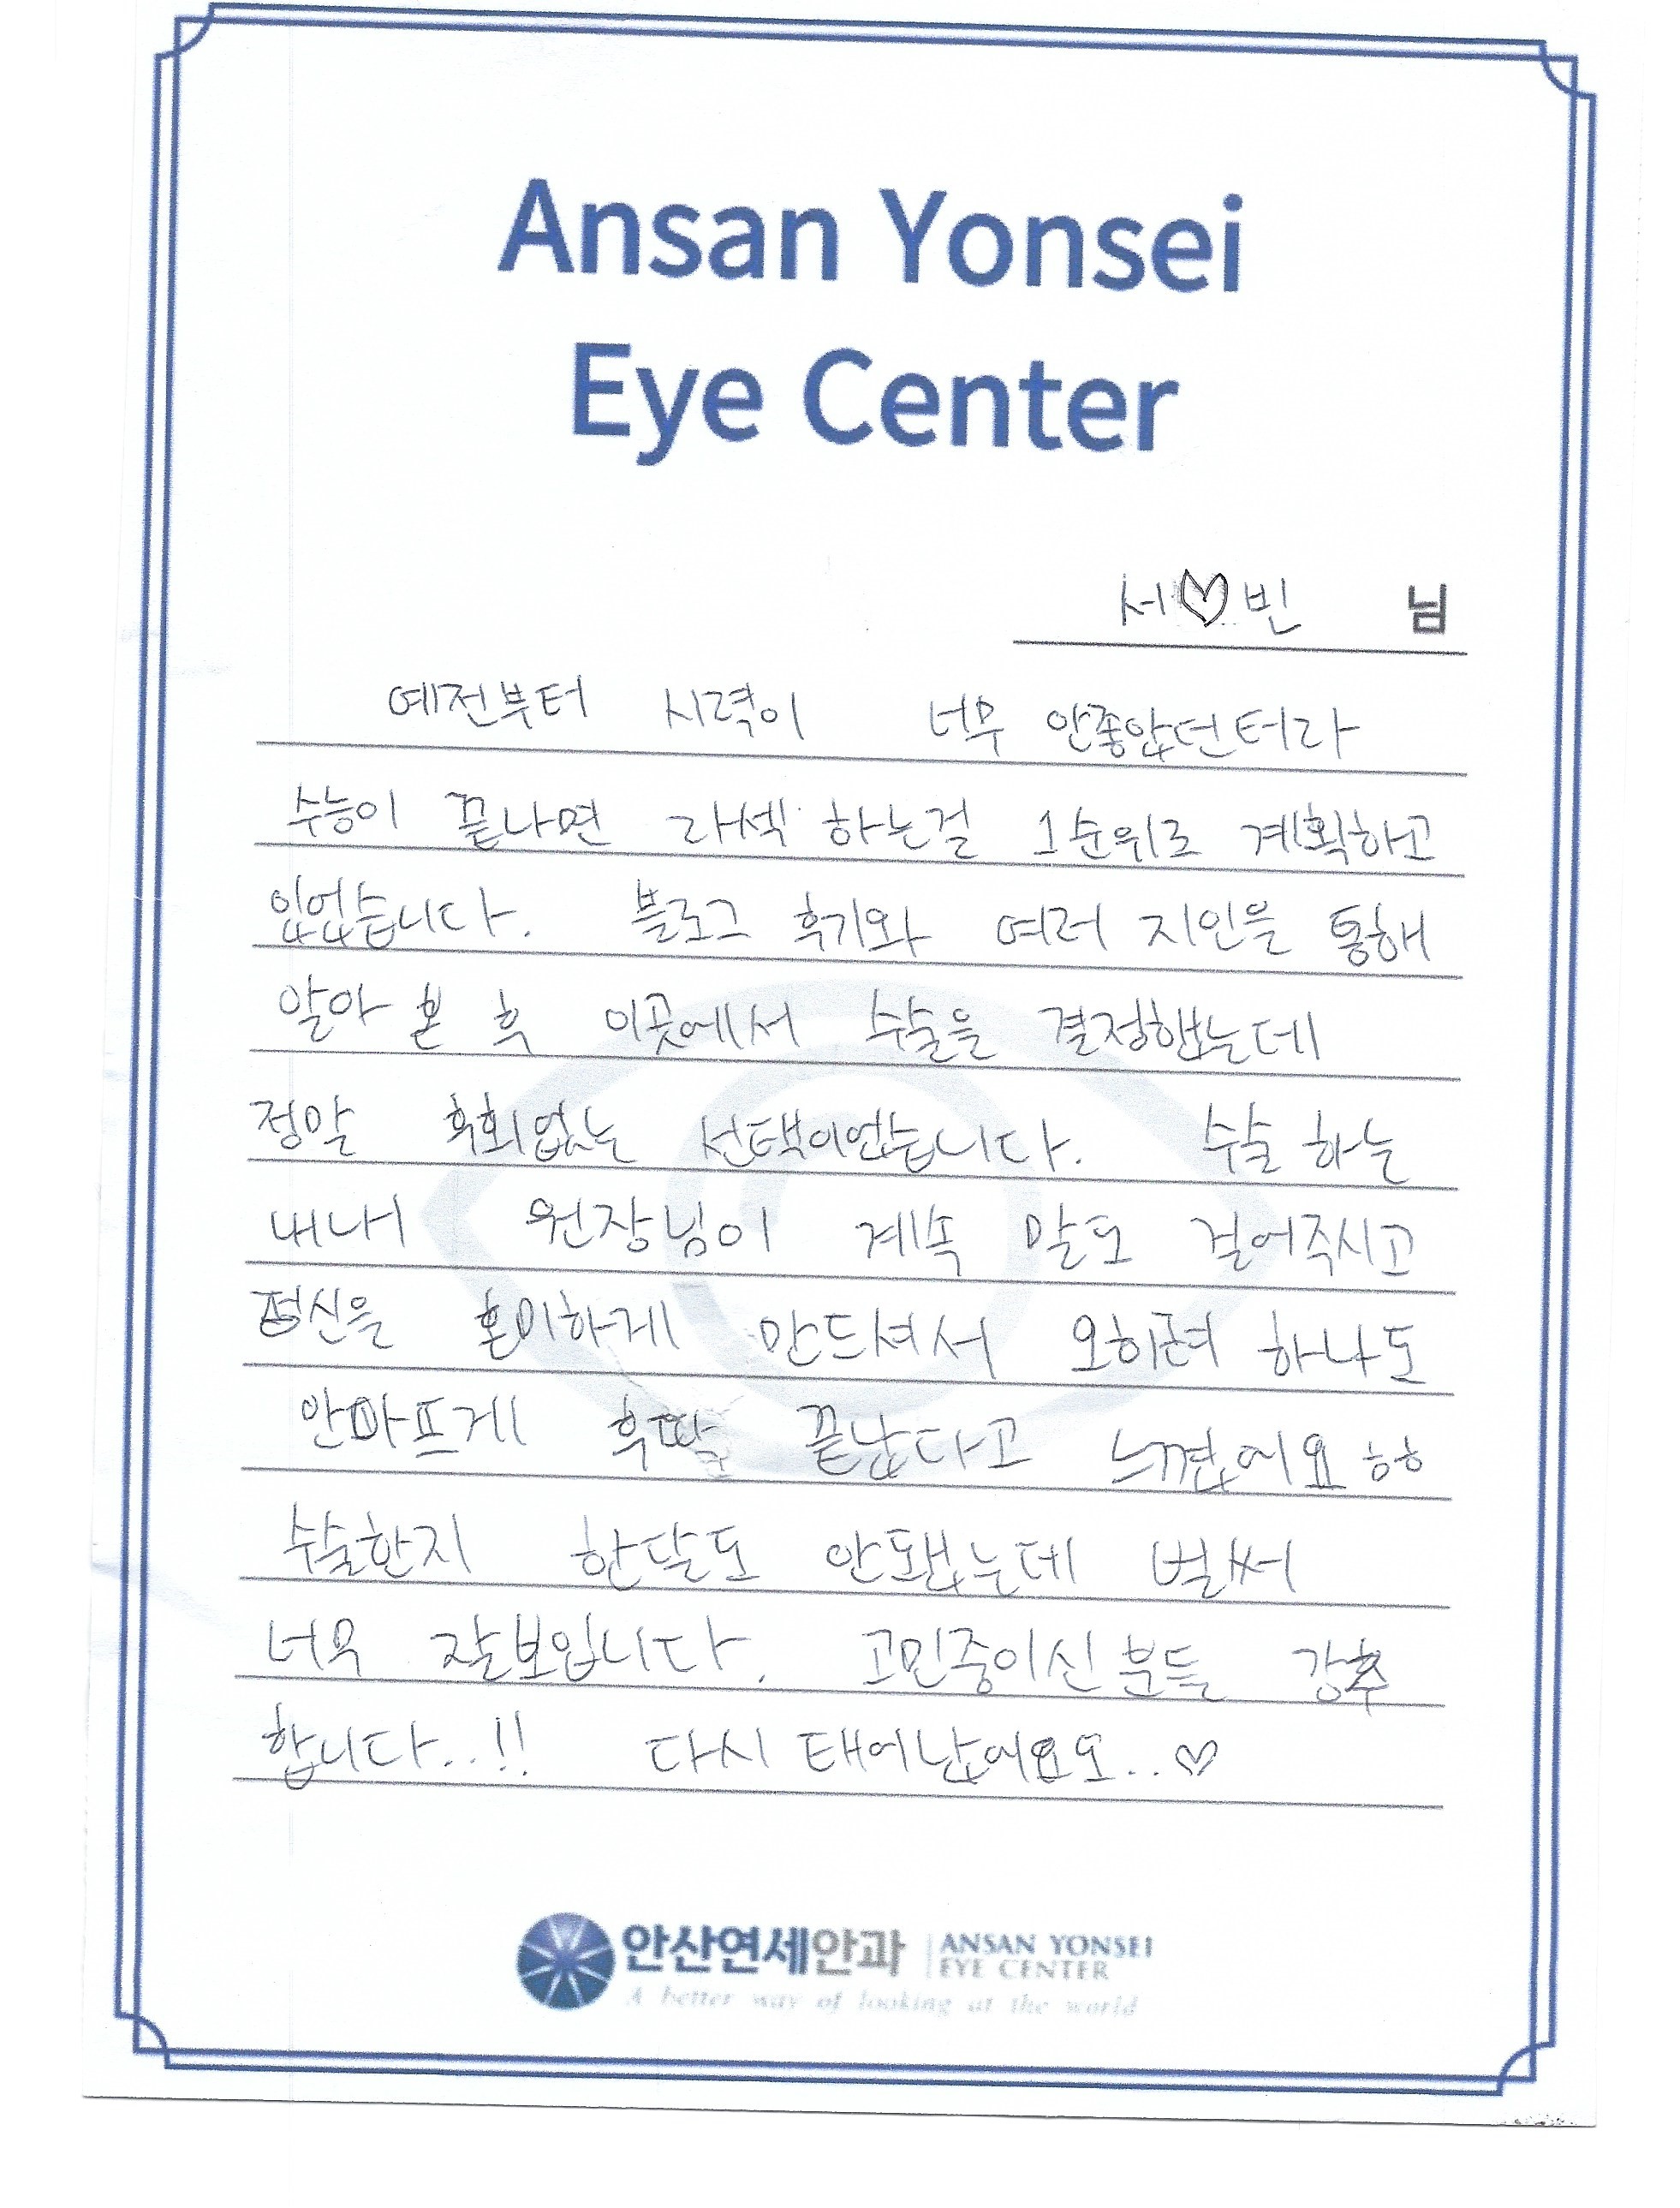 Ansan Yonsei
Eye Center
서♡빈 님
예전부터 시력이 너무 안좋았던터라
수능이 끝나면 라섹 하는걸 1순위로 계획하고
있었습니다. 블로그 후기와 여러 지인을 통해
알아 본 후 이곳에서 수술을 결정했는데
정말 후회없는 선택이었습니다. 수술 하는
내내 원장님이 계속 말도 걸어주시고
정신을 혼미하게 만드셔서 오히려 하나도
안아프게 후딱 끝났다고 느꼈어요 ㅎㅎ
수술한지 한달도 안됐는데 벌써
너무 잘보입니다. 고민중이신 분들 강추
합니다..!! 다시 태어났어요오..♡
안산연세안과 ANSAN YONSEI
EYE CENTER
A better way of looking at the world